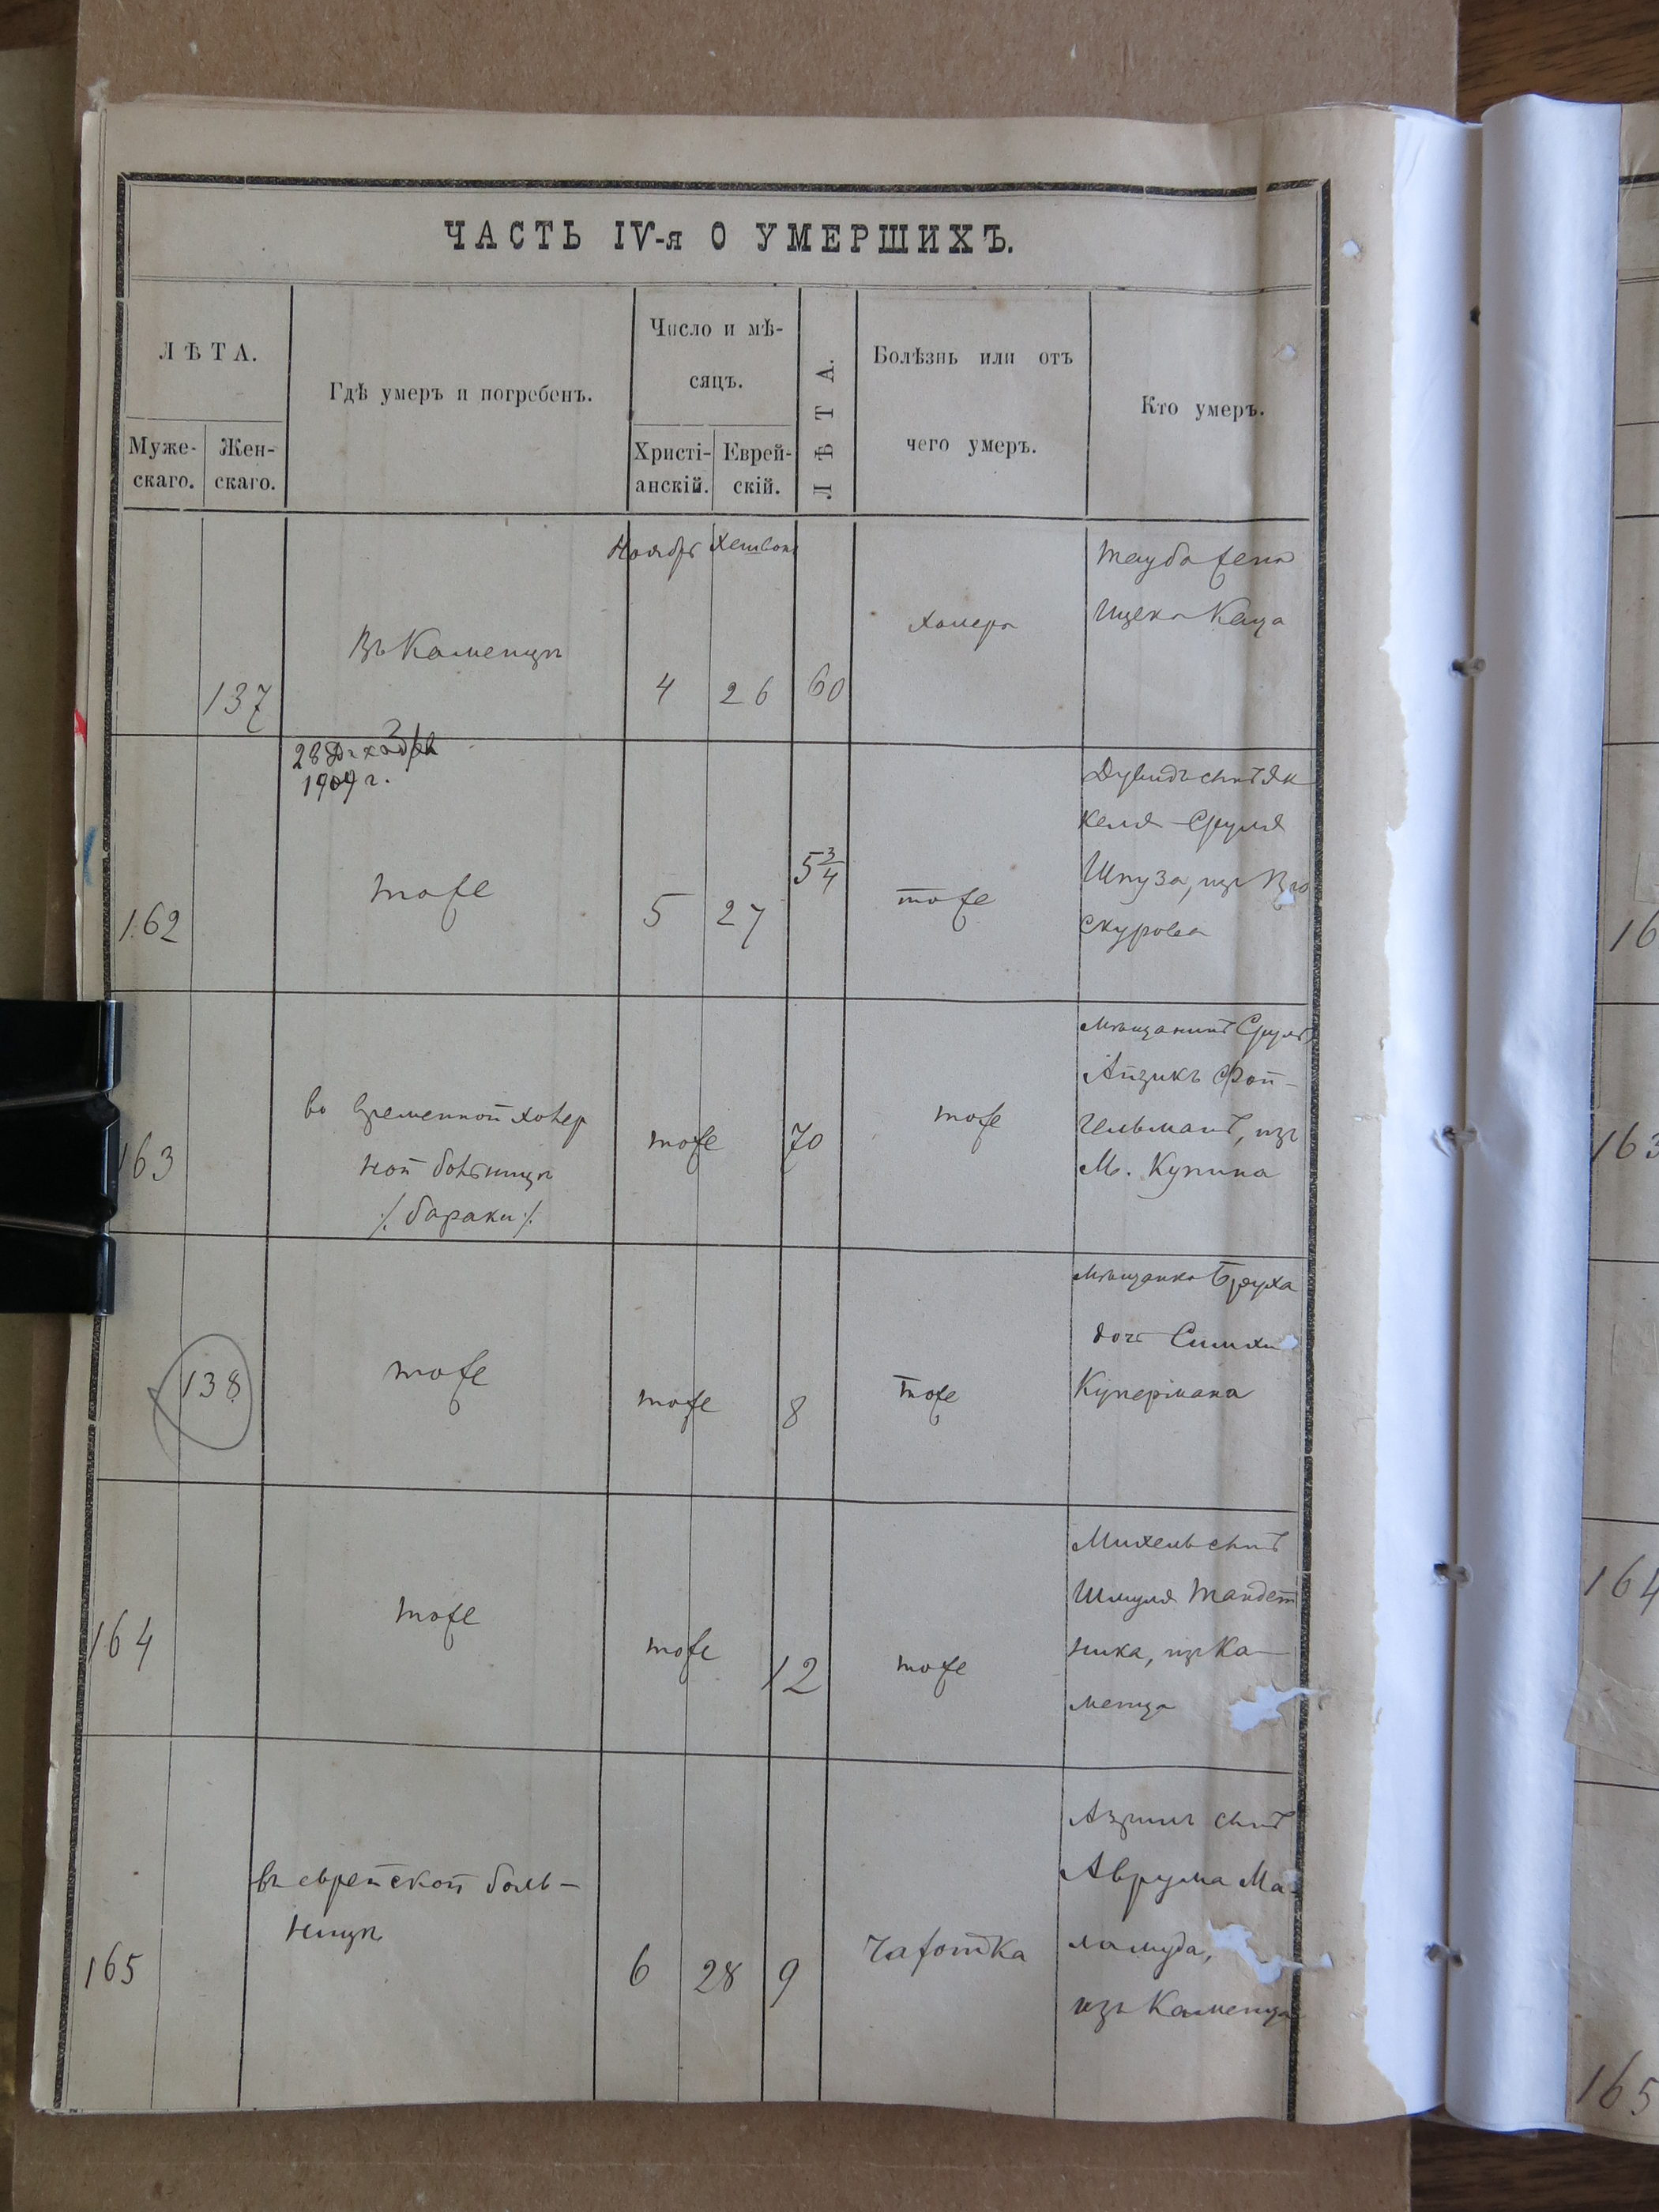 ЧАСТЬ IV-я О УМЕРШИХЪ.
ЛѢТА.
Муже-
скаго.
Жен-
скаго.
Гдѣ умеръ и погребенъ.
Число и мѣ-
сяцъ.
Христі-
анскій.
Еврей-
скій.
ЛѢТА.
Болѣзнь или отъ
чего умеръ.
Кто умеръ.
137
Въ Каменцѣ
Ноябрь Хешванъ
4 26 60
холера
Тауба жена
Ицека Каца
28
1909 г.
162
тоже
5 27
5 3/4
тоже
Дувидъ сынъ Ян
келя-Сруля
Шпуза, изъ Про
скурова
163
во временной холер
ной больницѣ
/. бараки /.
тоже
70
тоже
Мѣщанинъ Сруль
Айзикъ Фой-
гельманъ, изъ
М. Купина
138
тоже
тоже
8
тоже
Мѣщанка Бруха
дочь Симхи
Купермана
164
тоже
тоже
12
тоже
Михель сынъ
Шмуля Тандет
ника, изъ Ка-
менца
165
въ еврейской боль-
ницѣ
6 28 9
чахотка
Азриль сынъ
Аврума Ма-
ламуда,
изъ Каменца
16
163
164
165